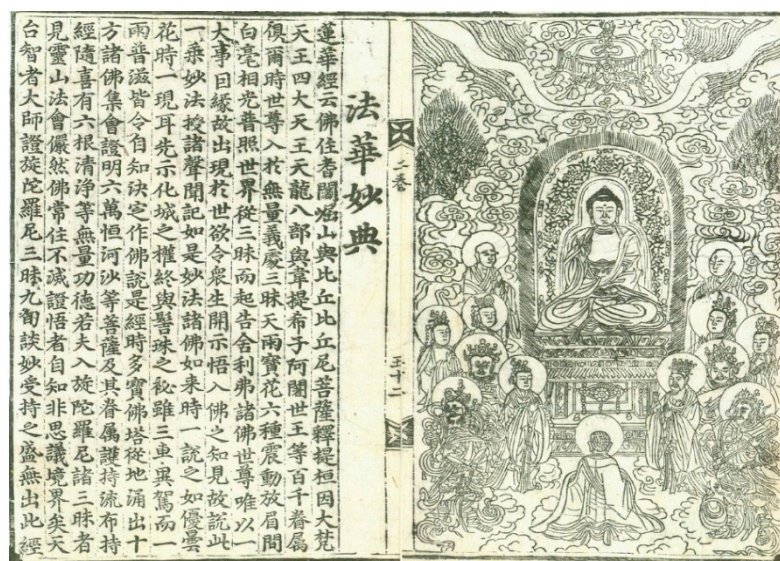 二卷
五十二
法華妙典
蓮華經云佛住耆闍崛山與比丘比丘尼菩薩釋提桓因大梵
天王四大天王天龍八部與韋提希子阿闍世王等百千眷属
俱爾時世尊入於無量義處三昧天雨寶花六種震動放眉間
白毫相光普照世界從三昧而起告舍利弗諸佛世尊唯以一
大事因緣故出現於世欲令衆生開示悟入佛之知見故說此
一乘妙法授諸聲聞記如是妙法諸佛如来時一說之如優曇
花時一現耳先示化城之權終與髻珠之秘雖三車異駕而一
雨普滋皆令自知決定作佛說是經時多寶佛塔從地涌出十
方諸佛集會證明六萬恒河沙等菩薩及其眷属護持流布持
經隨喜有六根清淨等無量功德若夫入旋陀羅尼諸三昧者
見靈山法會儼然佛常住不滅證悟者自知非思議境界矣天
台智者大師證旋陀羅尼三昧九旬談妙受持之盛無出此經